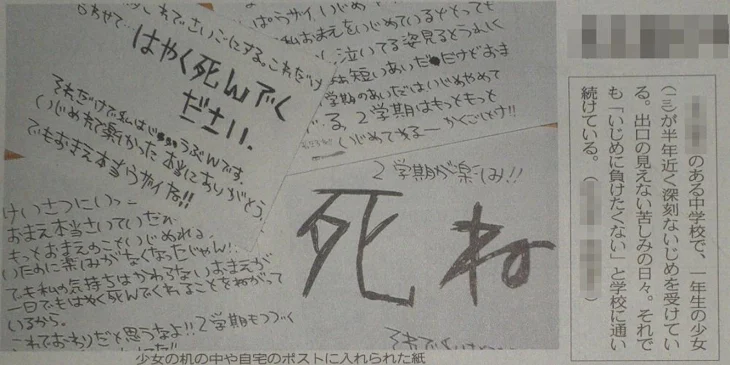 のある中学校で、一年生の少女
(一三)が半年近く深刻ないじめを受けてい
る。出口の見えない苦しみの日々。それで
も「いじめに負けたくない」と学校に通い
続けている。(
はやく死んでく
ださい。
それだけで私はじゅうぶんです
いじめれて楽しかった 本当にありがとう。
でもおまえ本当ウザイ
泣いてる姿見ると
短いあいだ だけどおま
学期のあいだはいじめやめて
る。2学期はもっともっと
いじめてやるー かくごしとけ!!
2学期が楽しみ!!
死ね
けいさつにいっ
おまえ本当さいていだね
もっとおまえのこといじめれる。
いために楽しみがなくなったじゃん!
でも私の気持ちはかわらない おまえが
一日でもはやく死んでくれることをねがって
いるから。
これでおわりだと思うなよ!! 2学期もつづく
少女の机の中や自宅のポストに入れられた紙